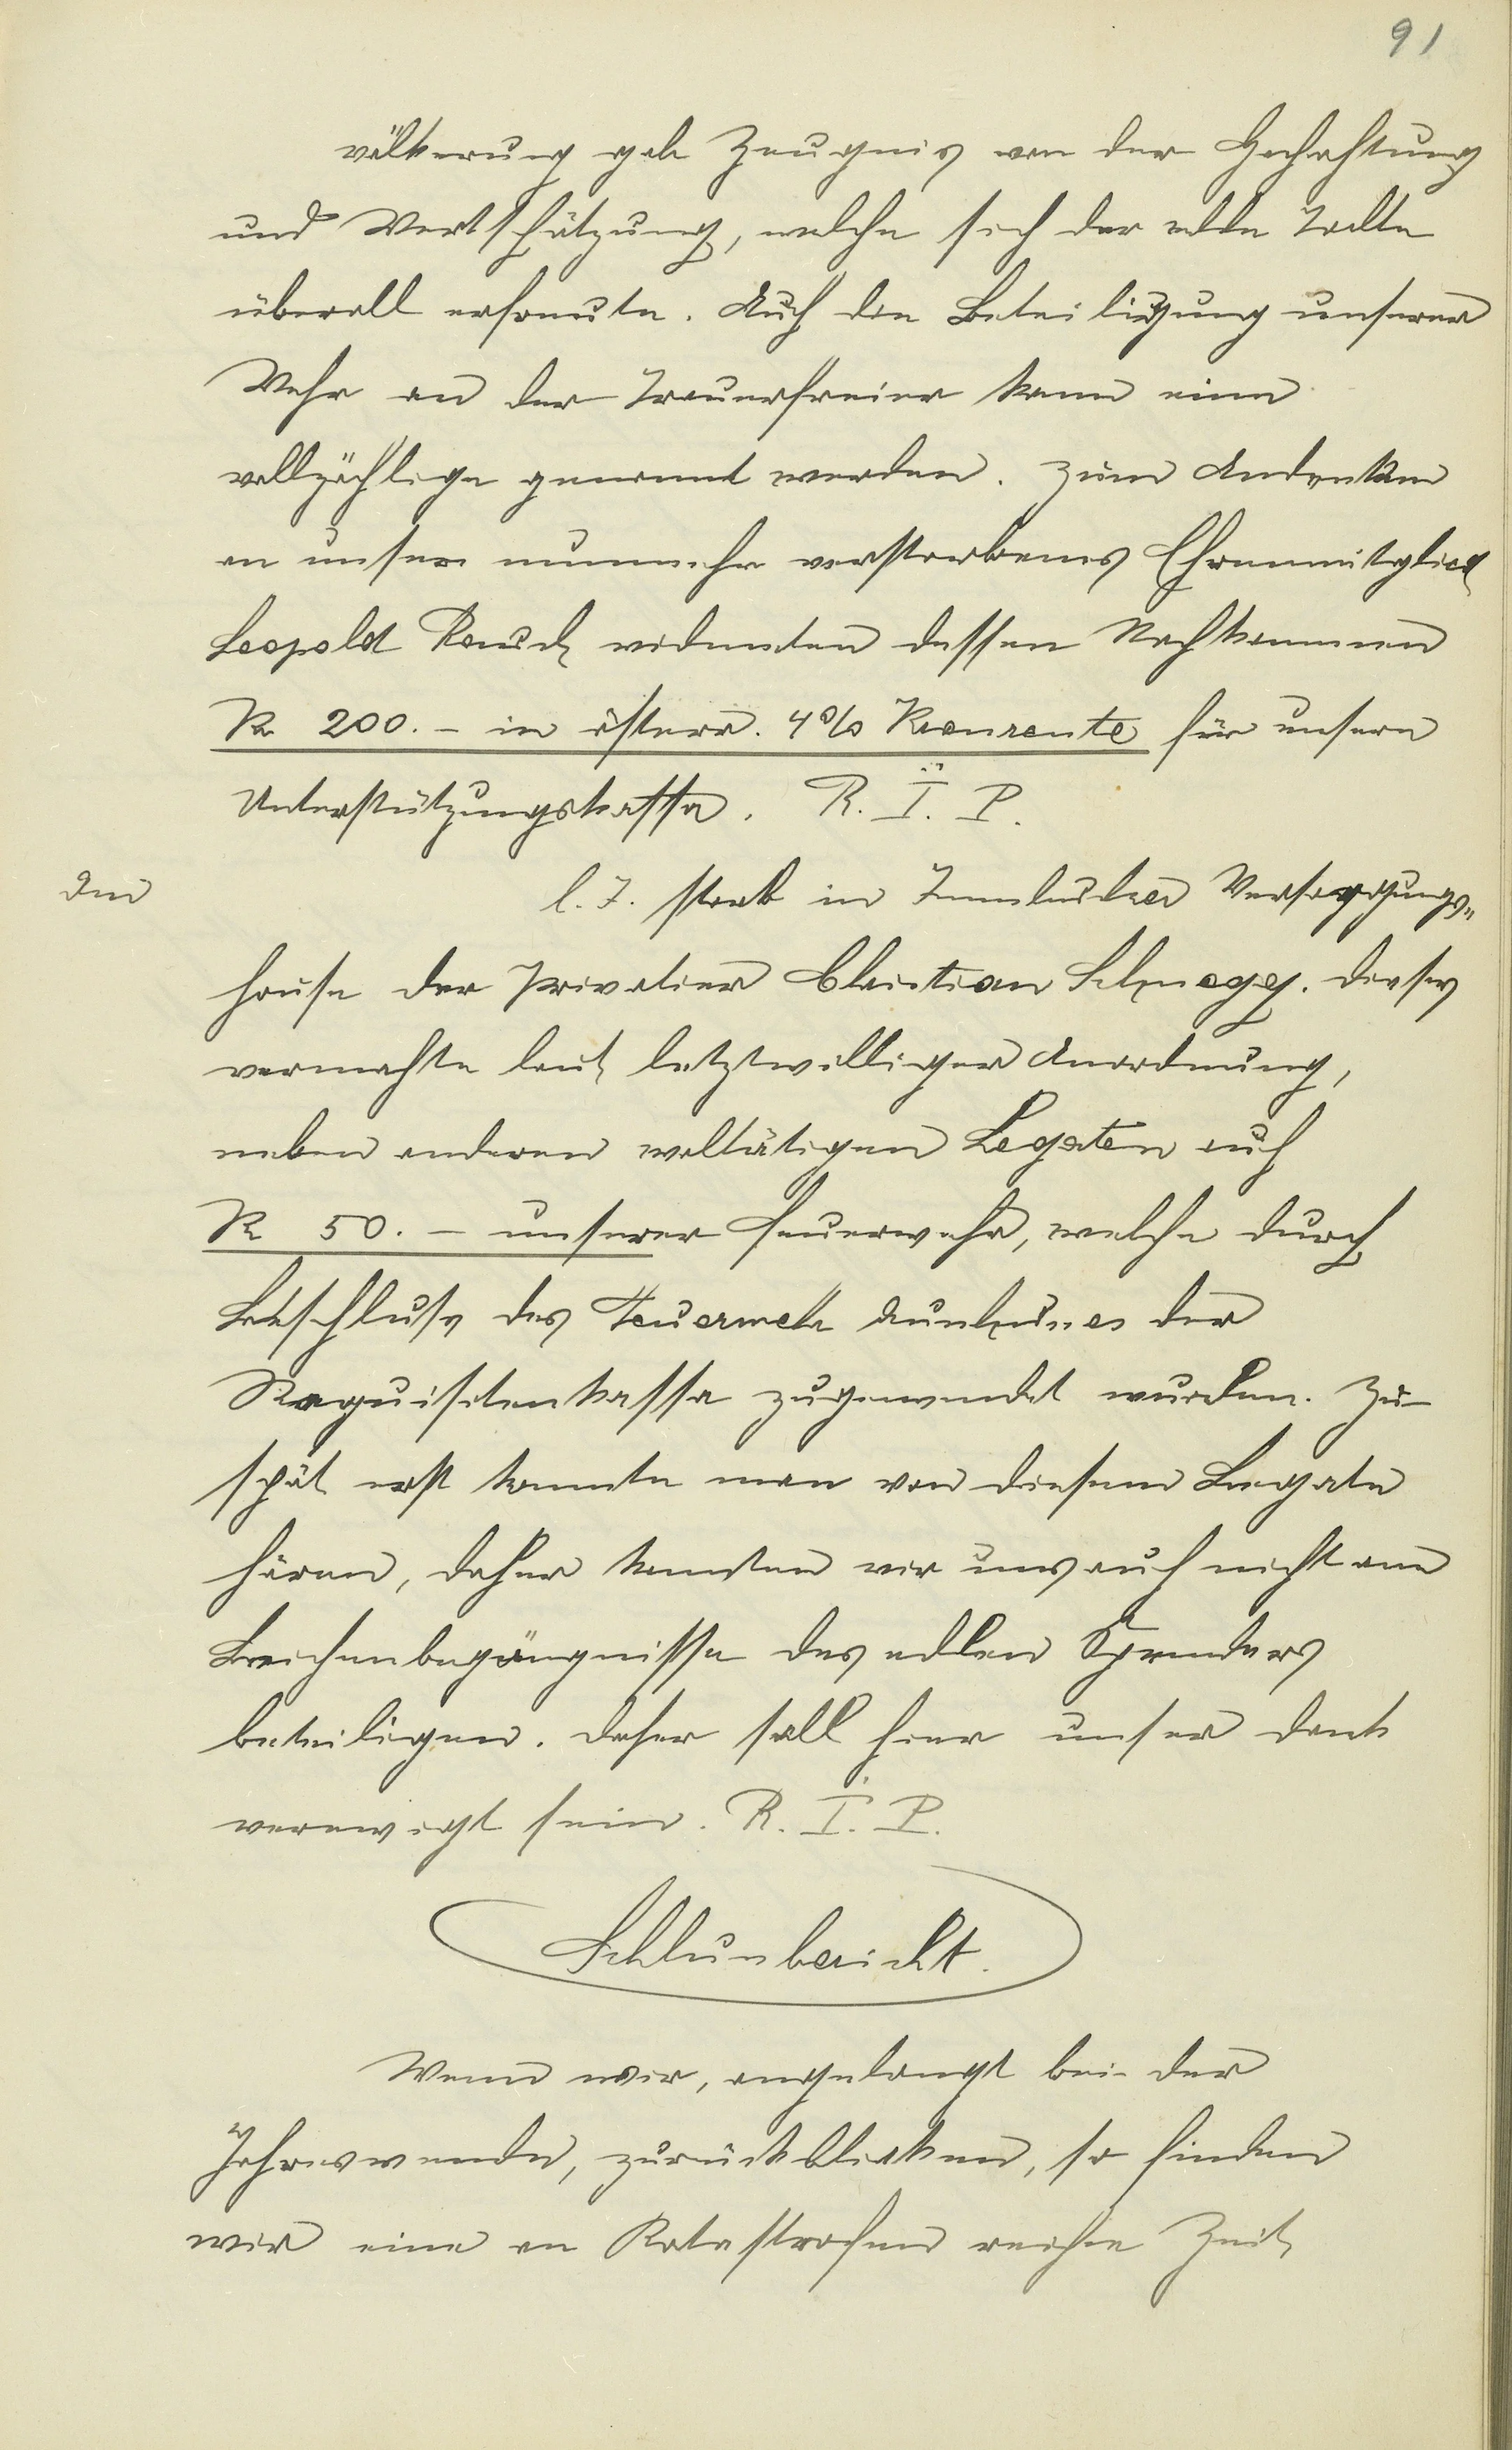 91
völkerung gab Zeugnis von der Hochachtung
und Wertschätzung, welche sich der edle Todte
überall erfreute. Auch die Beteiligung unserer
Wehr an der Trauerfeier kann eine
vollzählige genannt werden. Zum Andenken
an unser nunmehr verstorbenes Ehrenmitglied
Leopold Rausch widmeten dessen Nachkommen
K 200.- in österr. 4% Kronrente für unsere
Unterstützungskassa. R. I. P.
Am l. J. starb im Innsbrucker Versorgungs-
hause der Privatier Christian Schnegg. Dieser
vermachte laut letztwilliger Anordnung,
neben anderen woltätigen Legaten auch
K 50.- unserer Feuerwehr, welche durch
Beschluss des Feuerwehr Ausschusses der
Requisitenkassa zugewendet wurden. Zu-
spät erst konnte man von diesem Legate
hören, daher konnten wir uns auch nicht am
Leichenbegängnisse des edlen Spenders
beteiligen. Daher soll hier unser Dank
verewigt sein. R. I. P.
Schlussbericht.
Wenn wir, angelangt bei der
Jahreswende, zurückblicken, so finden
wir eine an Katastrofen reiche Zeit,